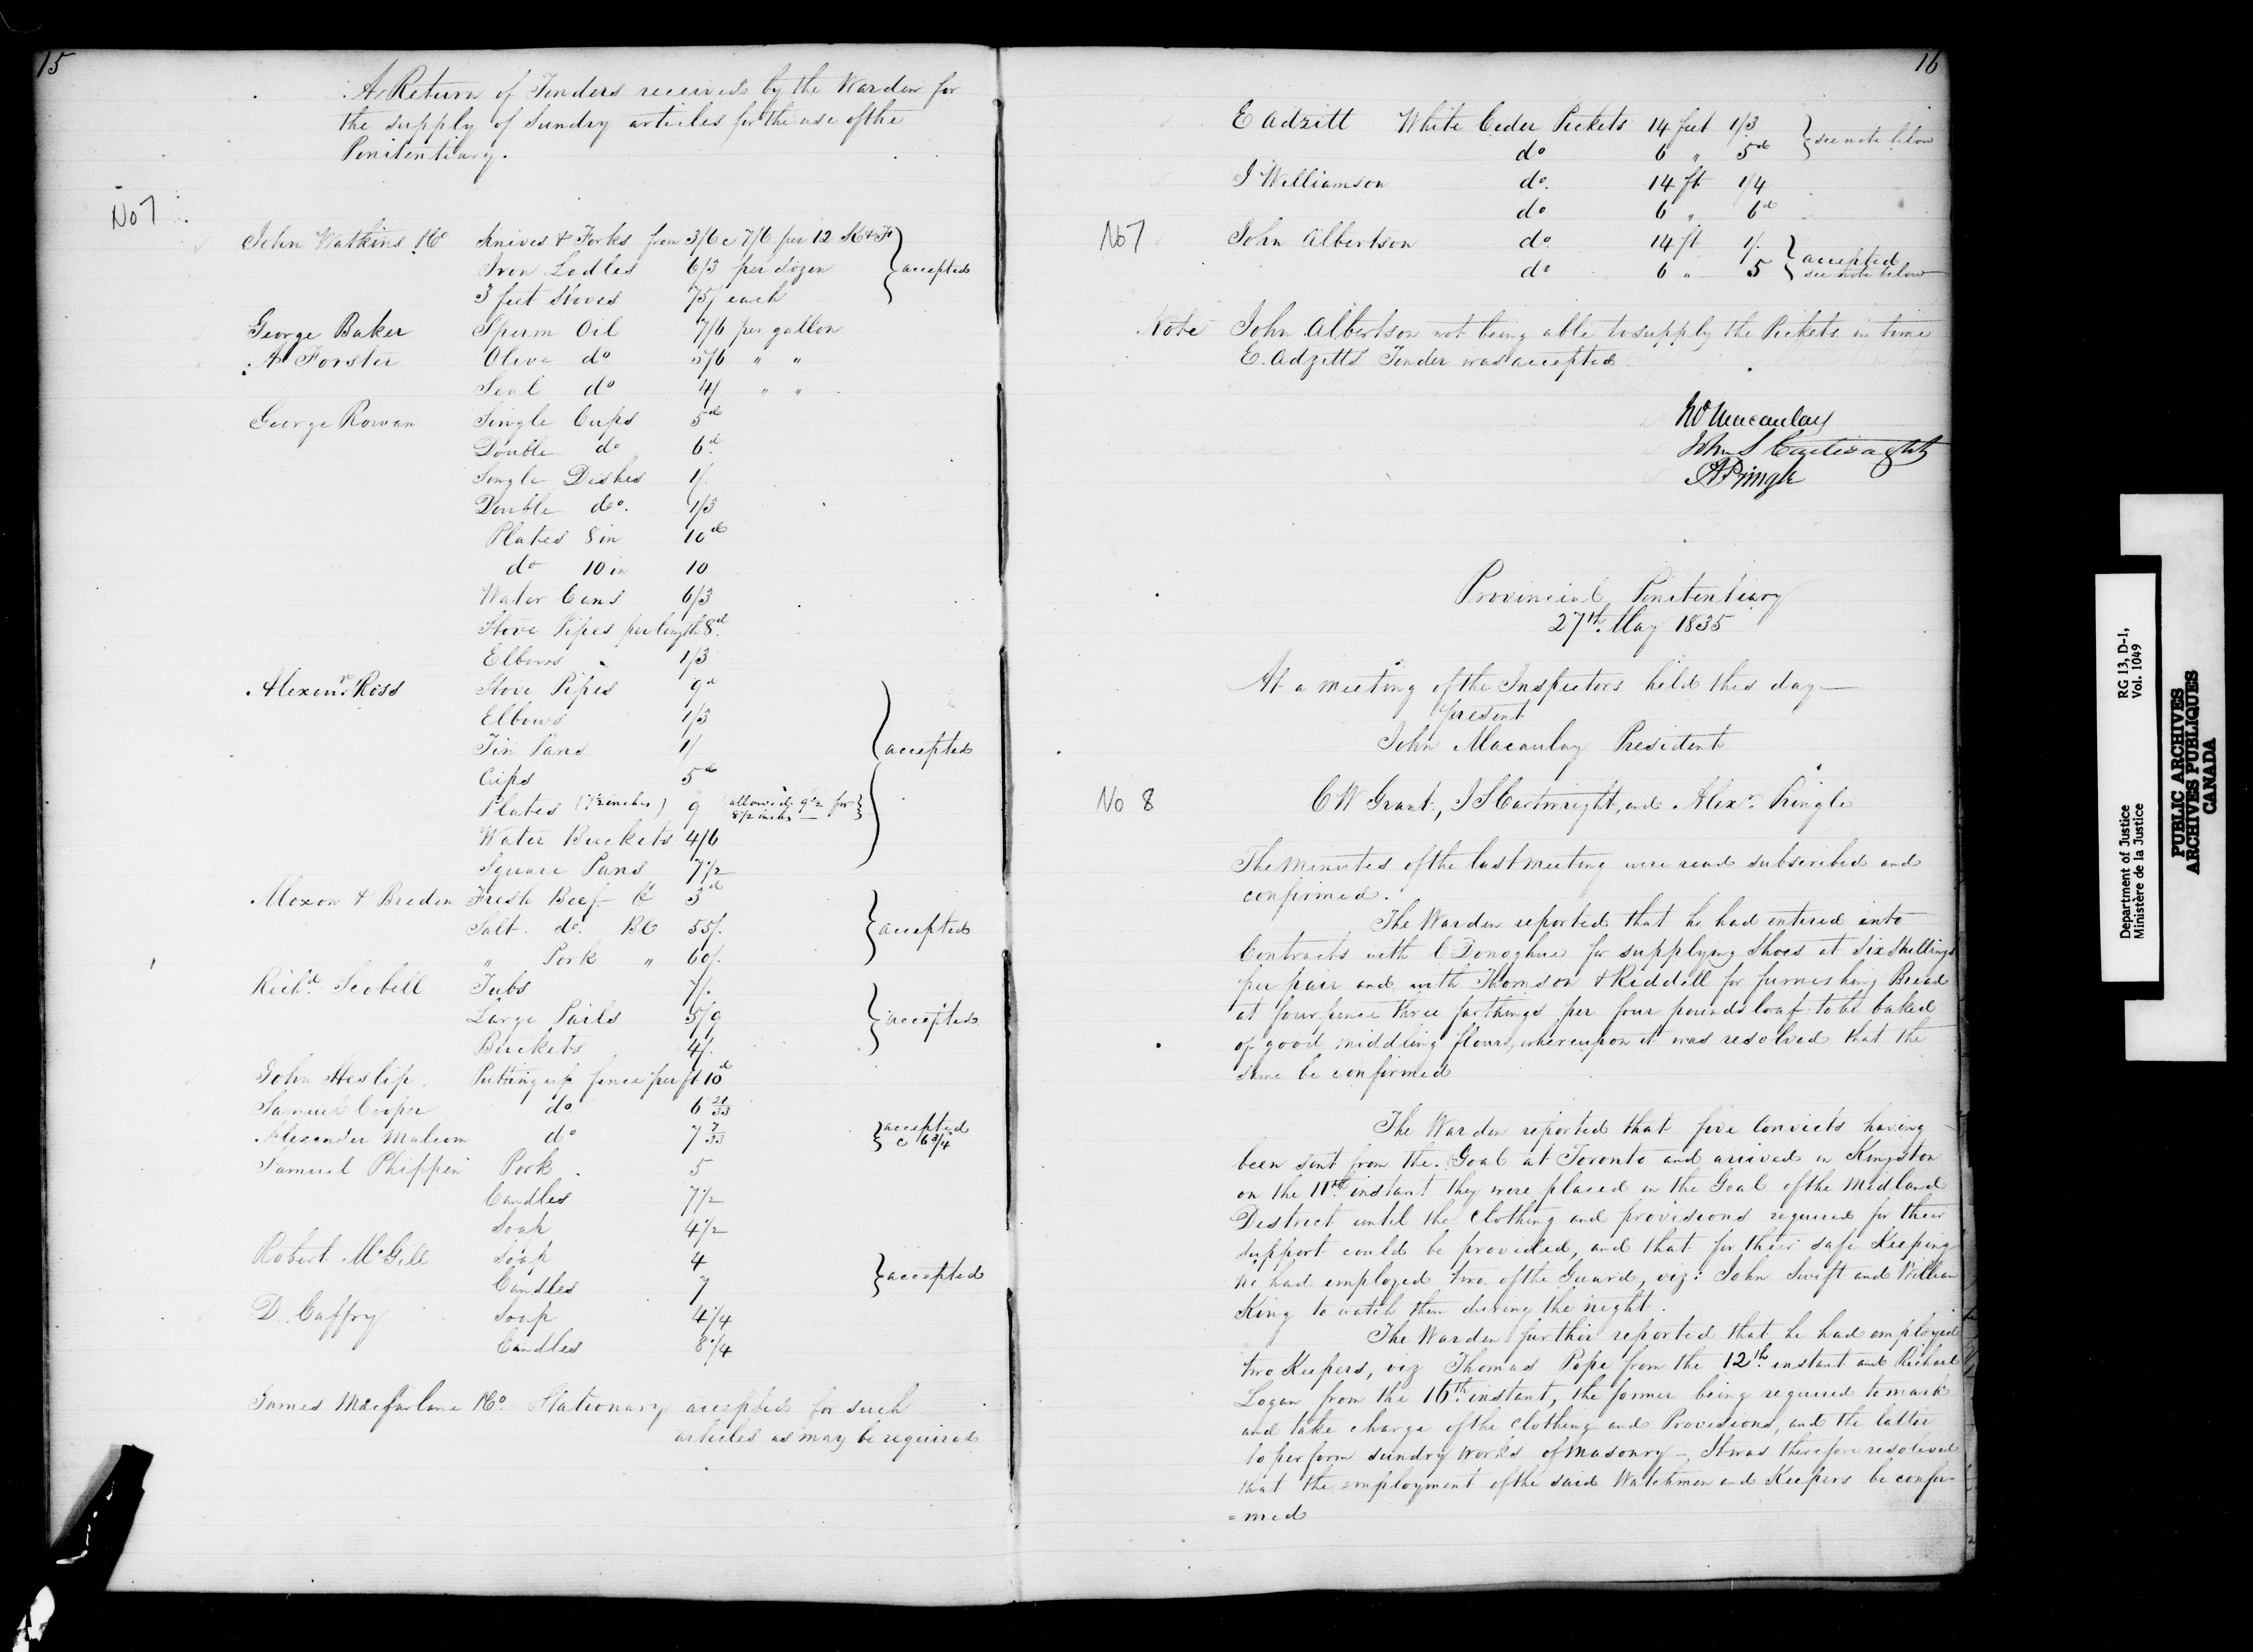 15
A Return of Tenders received by the Warden for
the supply of Sundry articles for the use of the
Penitentiary.
No 7
John Watkins &Co Knives & Forks from 3/6 c 7/6 per 12 K & F
Iron Ladles 6/3 per dozen } accepted
3 feet Stoves 75/ each
George Baker Sperm Oil 7/6 per gallon
A Forster Olive do 5/6 " "
Seal do 4/ " "
George Rowan Single Cups 5d
Double do 6d
Single Dishes 1/.
Double do. 1/3
Plates 8 in 10d
do 10 in 10
Water Cans 6/3
Stove Pipes per length 8d
Elbows " 1/3
Alexr. Ross Stove Pipes 9d
Elbows 1/3
Tin Pans 1/ } accepted
Cups 5d
Plates (7½ inches) 9 (allowed 9½ for
8½ inches —
Water Buckets 4/6
Square Pans 7½
Moxon & Breden Fresh Beef ℔ 3d
Salt do. Bl 55/. } accepted
" Pork " 60/.
Richd. Scobell Tubs 7/.
Large Pails 5/9 } accepted
Buckets 4/.
John Heslip Putting up fence per ft 10d
Samuel Cooper do 6 21/33
Alexander Malcom do 7 7/33 } accepted
c 6¾
Samuel Phippen Pork 5
Candles 7½
Soap 4½
Robert McGill Soap 4
Candles 7 } accepted
D. Caffry Soap 4¼
Candles 8¼
James Macfarlane &Co. Stationary accepted for such
articles as may be required
16
E Adzitt White Ceder Pickets 14 feet 1/3 } see note below
do 6 " 5d
J Williamson do. 14 ft 1/4
do 6 " 6d
No 7 John Albertson do 14 ft 1/. } accepted
do 6 " 5 see note below
Note John Albertson not being able to supply the Pickets in time
E. Adzitts Tender was accepted
Jno Macaulay
John S Cartwright
A Pringle
Provincial Penitentiary
27th. May 1835
At a meeting of the Inspectors held this day —
present
John Macaulay President
No 8 C W Grant, J S Cartwright, and Alexr. Pringle
The Minutes of the last meeting were read subscribed and
confirmed.
The Warden reported that he had entered into
Contracts with C Donoghue for supplying Shoes at Six Shillings
per pair and with Thomson & Riddell for furnishing Bread
at four pence three farthings per four pounds loaf to be baked
of good middling flour, whereupon it was resolved that the
same be confirmed
The Warden reported that five Convicts having
been sent from the Goal at Toronto and arrived in Kingston
on the 11th. instant they were placed in the Goal of the Midland
District until the Clothing and provisions required for their
support could be provided, and that for their safe Keeping
he had employed two of the Guard, viz: John Swift and William
King to watch them during the night.
The Warden further reported that he had employed
two Keepers, viz Thomas Pope from the 12th. instant and Richard
Logan from the 16th. instant, the former being required to mark
and take charge of the Clothing and Provisions, and the latter
to perform sundry works of Masonry — It was therefore resolved
that the employment of the said Watchmen and Keepers be confir=
=med
Department of Justice RG 13, D-1,
Ministère de la Justice Vol. 1049
PUBLIC ARCHIVES
ARCHIVES PUBLIQUES
CANADA